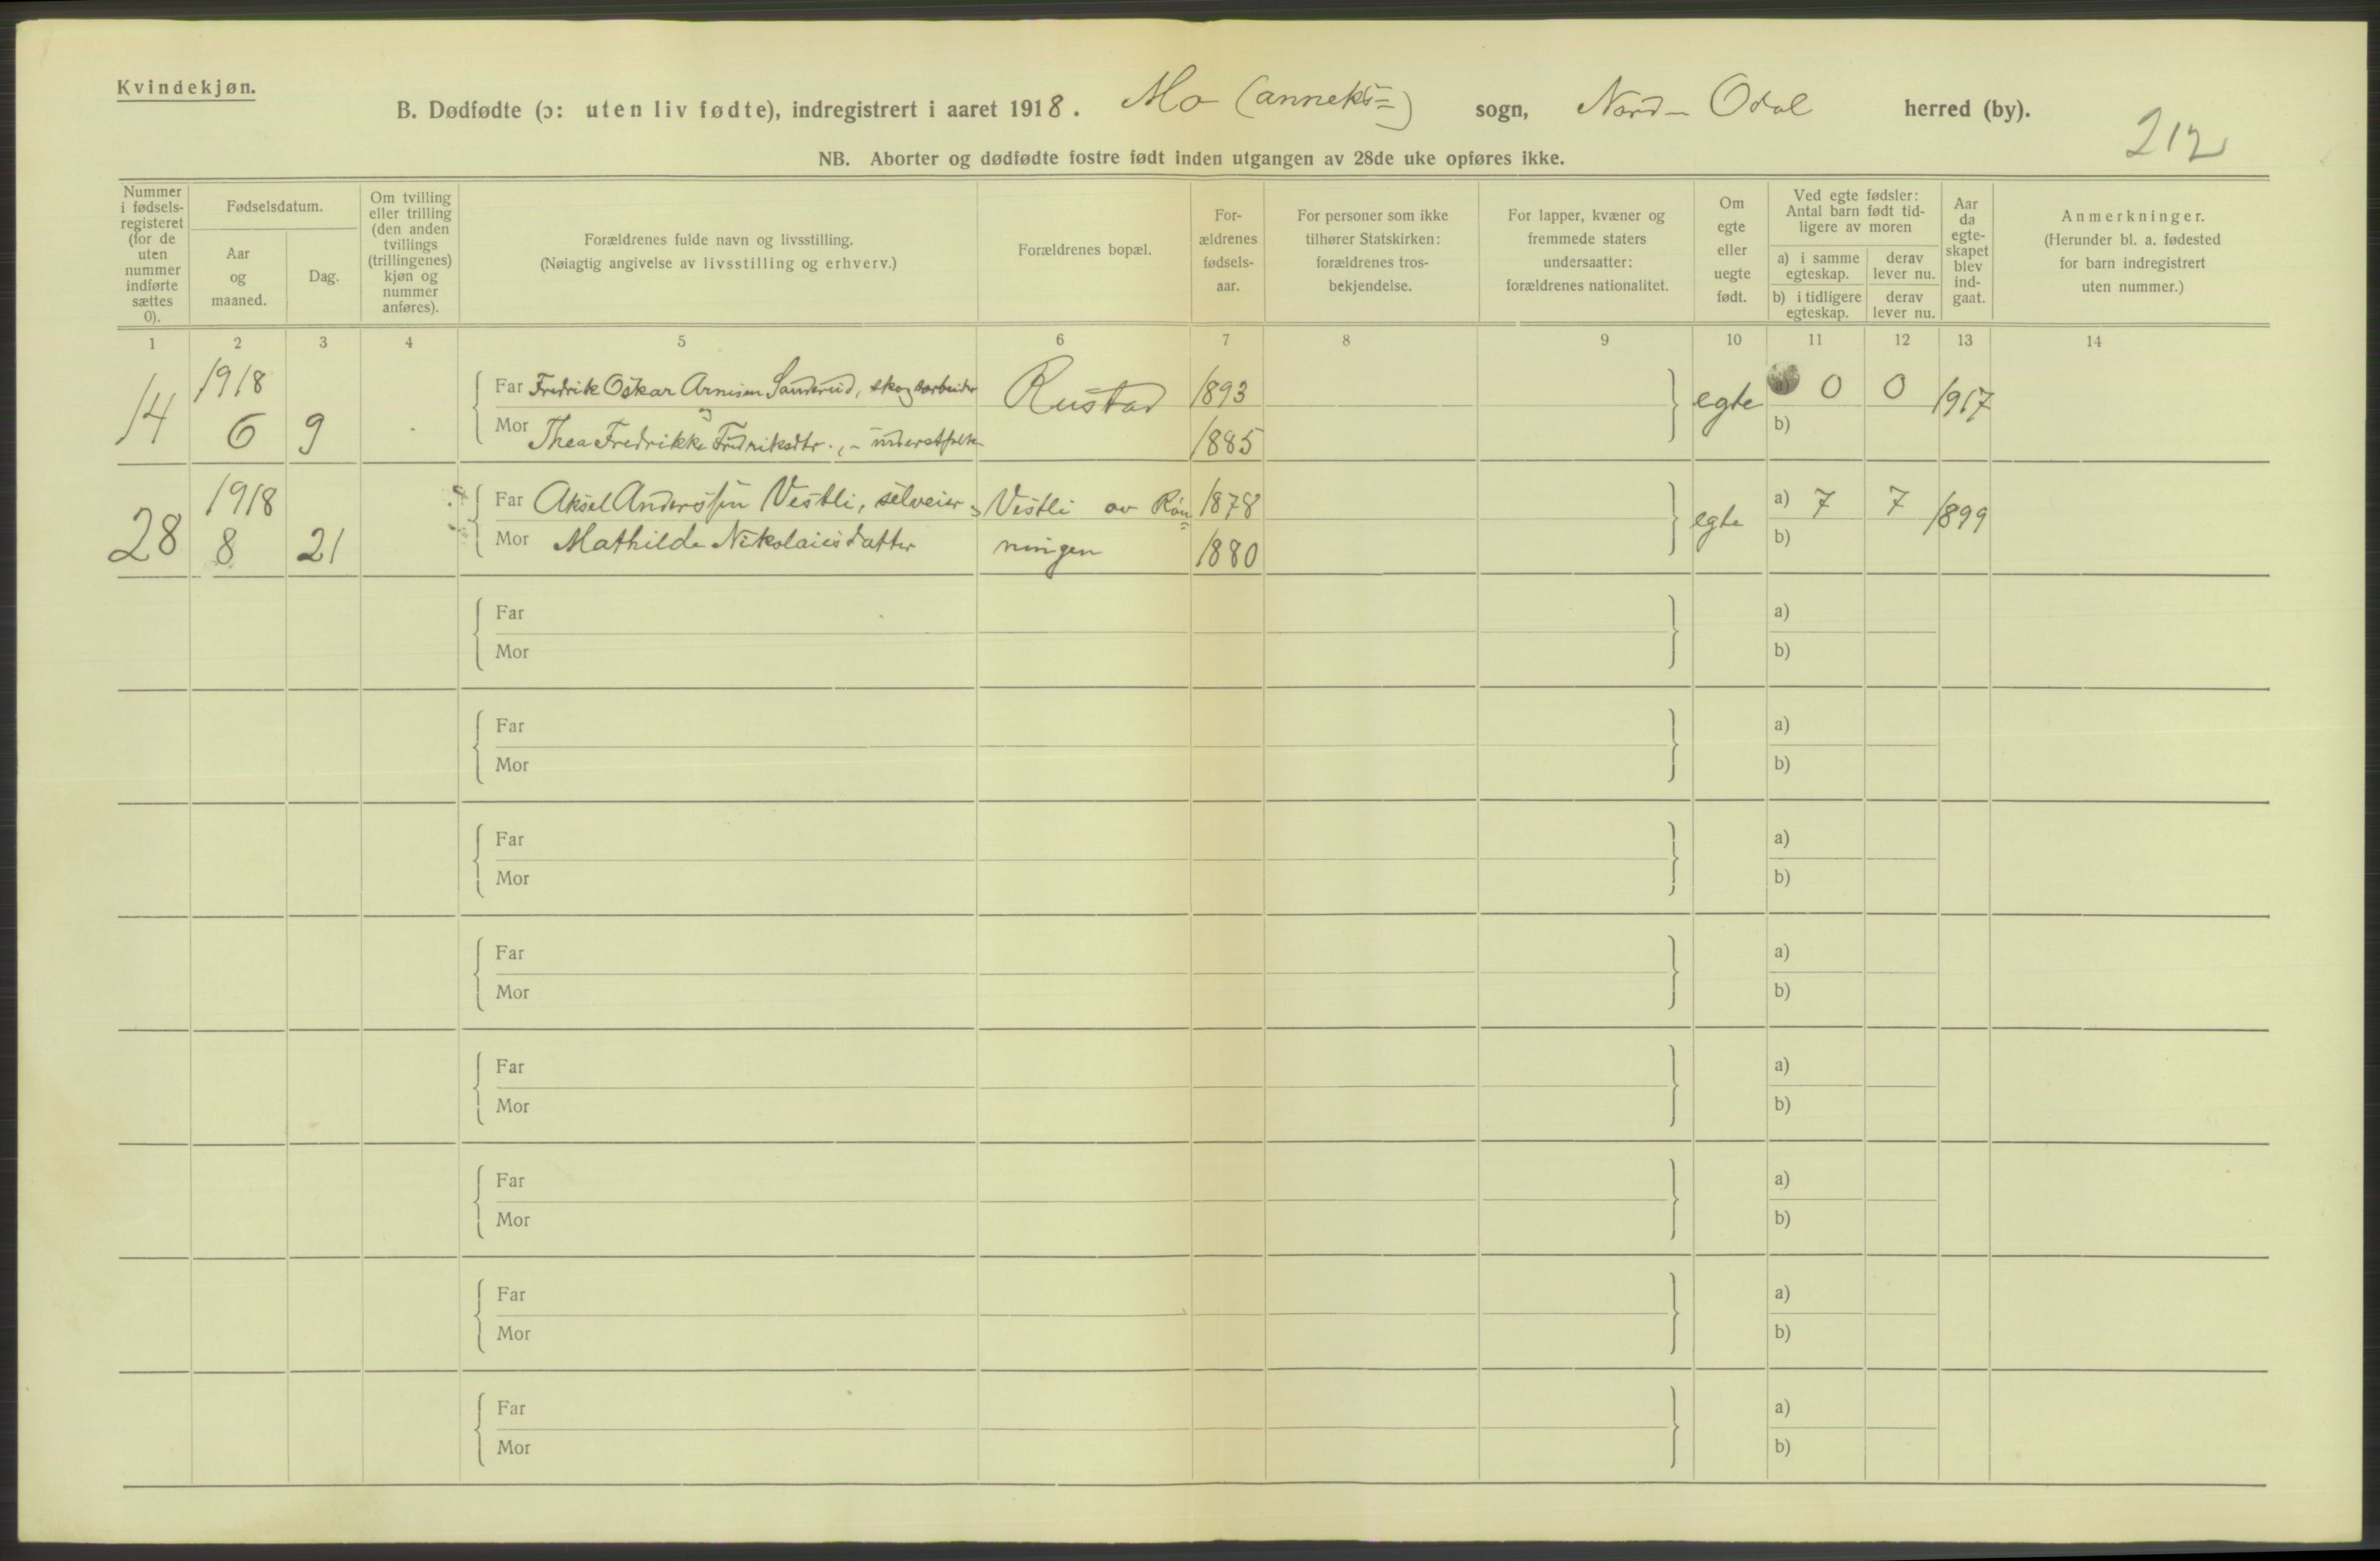 Kvindekjøn.
B. Dødfødte (ɔ: uten liv fødte), indregistrert i aaret 1918. Mo (anneks=) sogn, Nord-Odal herred (by).
212
NB. Aborter og dødfødte fostre født inden utgangen av 28de uke opføres ikke.
Nummer i fødselsregisteret (for de uten nummer indførte sættes 0).
Fødselsdatum.
Aar og maaned.
Dag.
Om tvilling eller trilling (den anden tvillings (trillingenes) kjøn og nummer anføres).
Forældrenes fulde navn og livsstilling.
(Nøiagtig angivelse av livsstilling og erhverv.)
Forældrenes bopæl.
For-ældrenes fødsels-aar.
For personer som ikke tilhører Statskirken: forældrenes tros-bekjendelse.
For lapper, kvæner og fremmede staters undersaatter: forældrenes nationalitet.
Om egte eller uegte født.
Ved egte fødsler: Antal barn født tid-ligere av moren
a) i samme egteskap.
derav lever nu.
b) i tidligere egteskap.
derav lever nu.
Aar da egte-skapet blev ind-gaat.
Anmerkninger.
(Herunder bl. a. fødested for barn indregistrert uten nummer.)
1 2 3 4 5 6 7 8 9 10 11 12 13 14
14 1918 6 9 Far Fredrik Oskar Arnesen Sanderud, skogsarbeider Rustad 1893 egte a) 0 0 1917
Mor Thea Fredrikke Fredriksdtr. 1885 b)
28 1918 8 21 Far Aksel Anderssen Vestli, selveier Vestli av Røn= 1878 egte a) 7 7 1899
Mor Mathilde Nikolaisdatter ningen 1880 b)
Far a)
Mor b)
Far a)
Mor b)
Far a)
Mor b)
Far a)
Mor b)
Far a)
Mor b)
Far a)
Mor b)
Far a)
Mor b)
Far a)
Mor b)